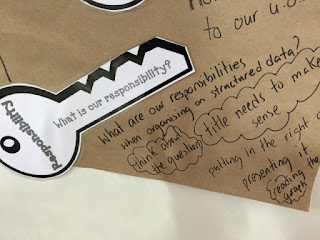 to our u.o.
Responsibility
What is our responsibility?
What are our responsibilities
when organising on structured data?
think about
the question
title needs to make
sense
putting in the right o
presenting it the
reading
graph